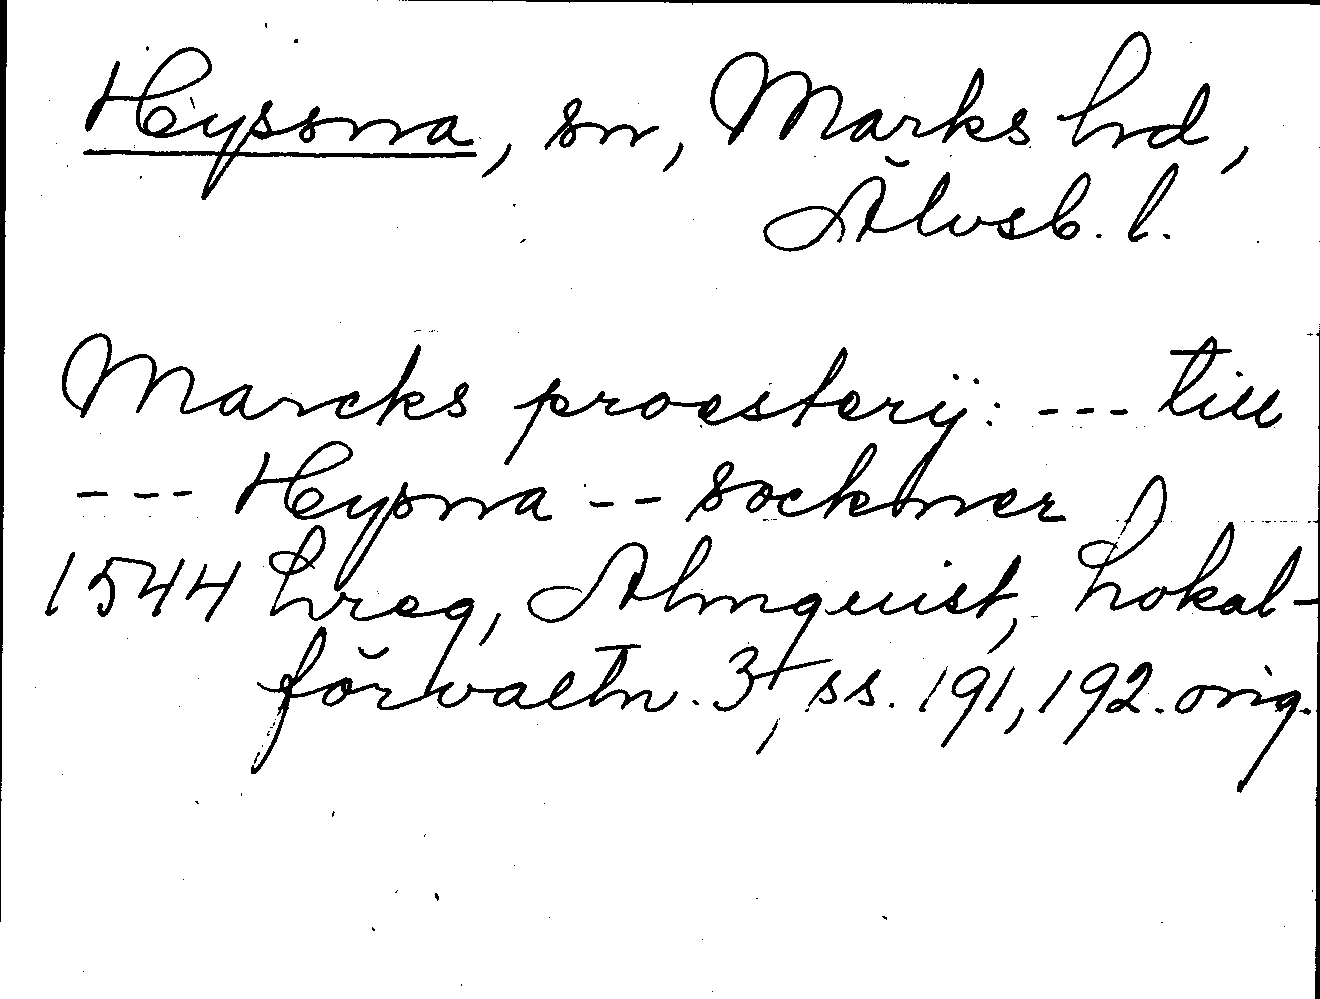 Hyssna, sn, Marks hd,
Älvsb. l.
Marcks proesterij: --- till
--- Hysna -- sockner
1544 Lreg, Almquist, Lokal-
förvaltn. 3, ss. 191, 192. orig.